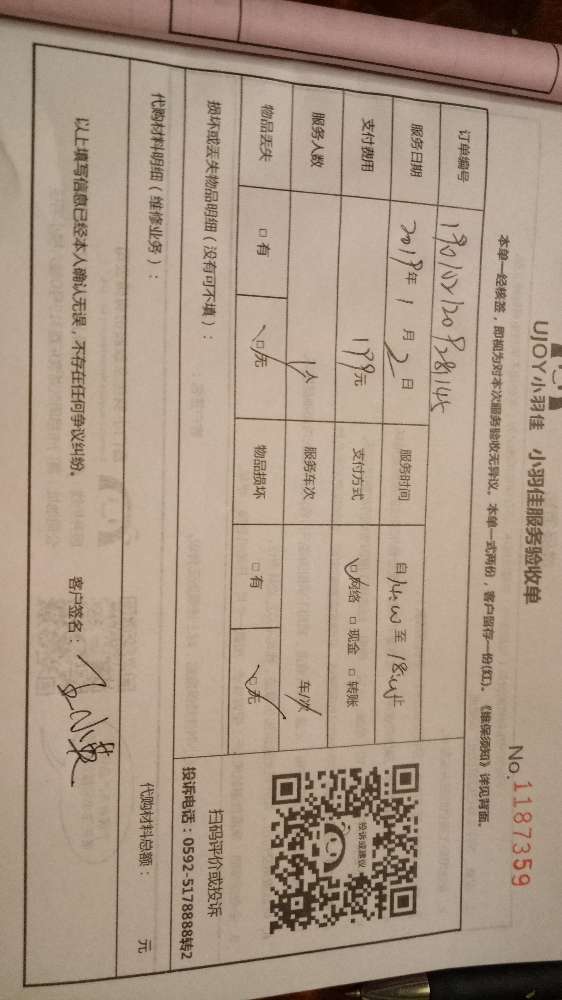 UJOY小羽佳 小羽佳服务验收单
No.1187359
本单一经核签，即视为对本次服务验收无异议。本单一式两份，客户留存一份(红)。《维保须知》详见背面。
订单编号 190102120928145
服务日期 2019年 1 月 2 日 服务时间 自14:00至18:00止
支付费用 199元 支付方式 □网络 □现金 □转账
服务人数 1人 服务车次 车/次
物品丢失 □有 □无 物品损坏 □有 □无
投诉或建议
扫码评价或投诉
投诉电话：0592-5178888转2
损坏或丢失物品明细（没有可不填）：
代购材料明细（维修业务）： 代购材料总额： 元
以上填写信息已经本人确认无误，不存在任何争议纠纷。 客户签名：